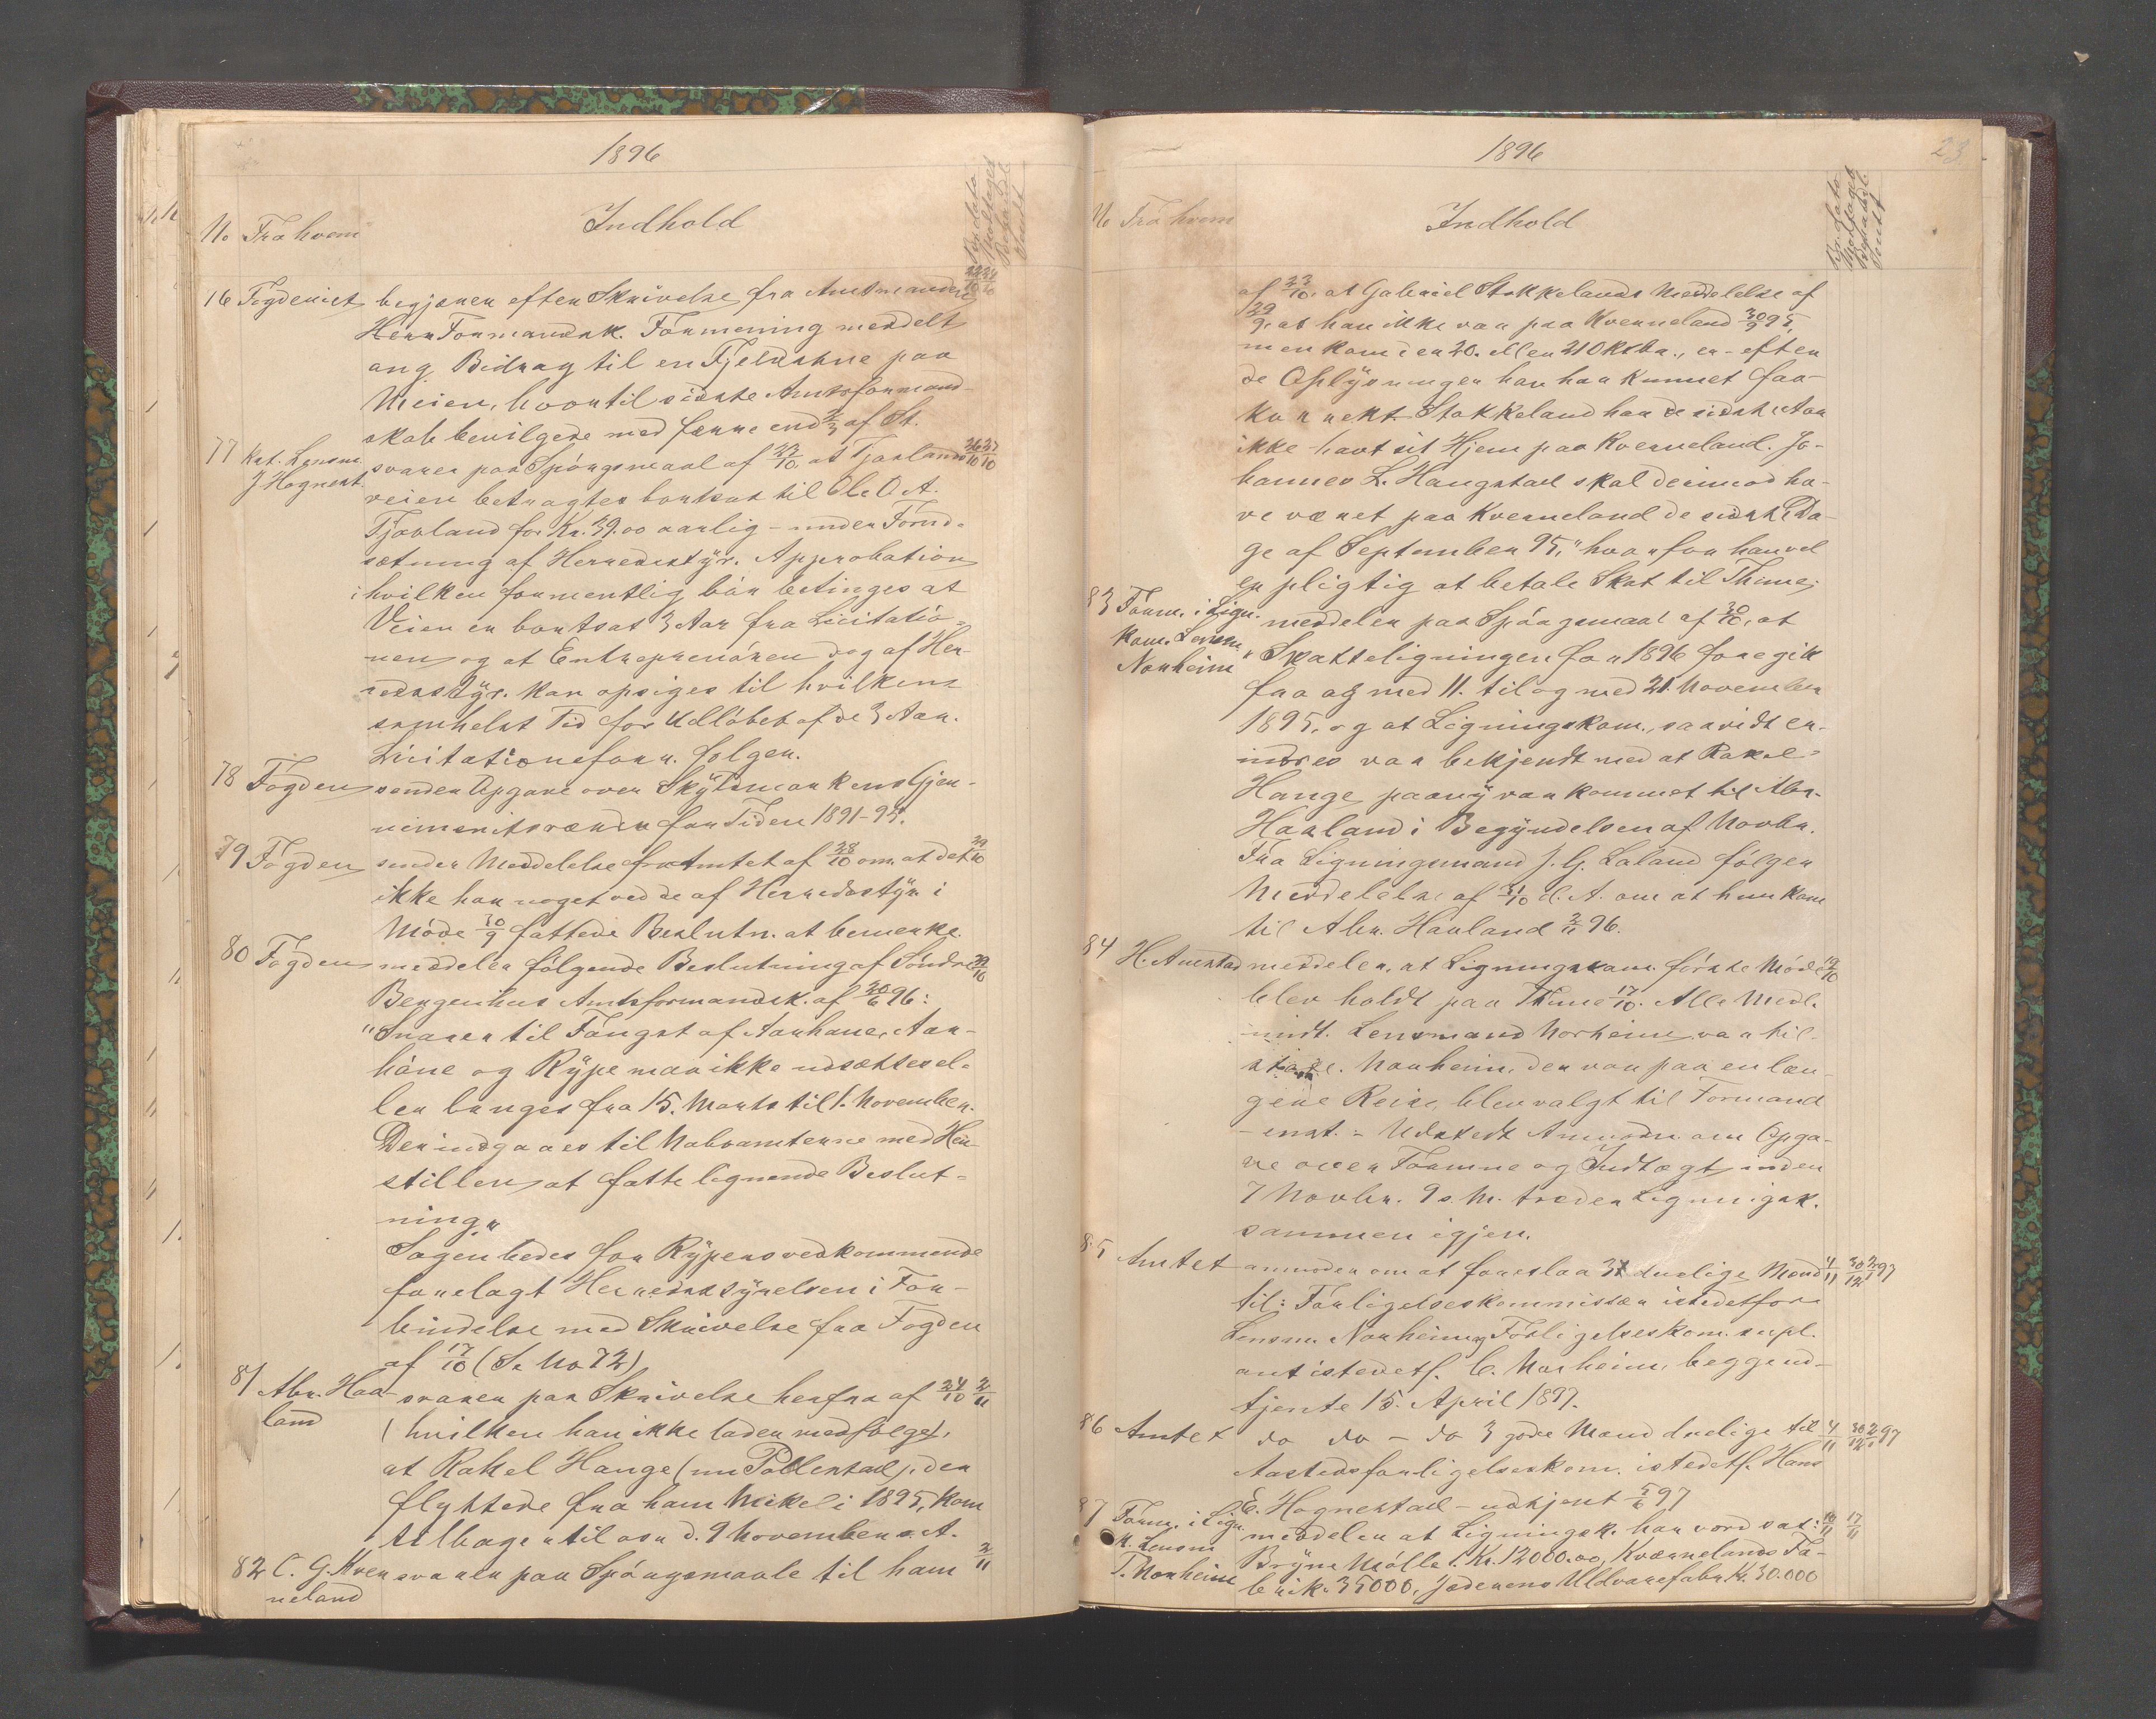 1896
No Fra hvem
Indhold
16 Fogderiet begjærer efter Skrivelse fra Amtmanden 22/10 24/10
Herr Formandsk. Formening meddelt
ang Bidrag til en Fjeldstue paa
Meien, hvortil sidste Amtsformand-
skab bevilgede med færre end 2/3 af St.
77 Kst. Lensm. svarer paa Spörgsmaal af 22/10 at Tjaalands 26/10 27/10
J Hognest. veien betragtes bortsat til Ole O A.
Tjaaland for Kr. 39.00 aarlig – under Forud-
sætning af Herredsstyr. Approbation
i hvilken formentlig bör betinges at
Veien er bortsat 3 Aar fra Licitatio-
nen og at Entreprenören dog af Her-
redsstyr. kan opsiges til hvilken
somhelst Tid for Udlöbet af de 3 Aar.
Licitationsforr. fölger.
78 Fogden sender Opgave over Skyldmarkens Gjen-
nemsnitsværdi for Tiden 1891-95.
79 Fogden sender Meddelelse fra Amtet af 28/10 om at det 29/10
ikke har noget ved de af Herredsstyr. i
Möde 30/9 fattede Beslutn. at bemerke.
80 Fogden meddeler fölgende Beslutning af Söndre 29/10
Bergenhus Amtsformandsk. af 20/6 96:
"Snarer til Fangst af Aarhane, Aar-
höne og Rype maa ikke udsættes el-
ler bruges fra 15. Marts til 1. November.
Der indgaaes til Naboamterne med Hen-
stillen at fatte lignende Beslut-
ning"
Sagen bedes for Rypens vedkommende
forelagt Herredsstyrelsen i For-
bindelse med Skrivelse fra Fogden
af 17/10 (Se No 72)
81 Abr. Haa- svarer paa Skrivelse herfra af 24/10 2/11
land (hvilken han ikke lader medfölge),
at Rakel Hauge (nu Pollestad), der
flyttede fra ham Mikeli 1895, kom
tilbage til osv d. 9 November s. A.
82 C. G. Kver svarer paa Spörgsmaale til ham 2/11
neland
1896
23
No Fra hvem
Indhold
af 22/10, at Gabriel Stokkelands Meddelelse af
29/9, at han ikke var paa Kverneland 30/9 95,
men kom den 20. eller 21 Oktbr., er – efter
de Oplysninger han har kunnet faa –
korrekt. Stokkeland har de sidste Aar
ikke havt sit Hjem paa Kverneland. Jo-
hannes L. Haugstad skal derimod ha-
ve været paa Kverneland de sidste Da-
ge af September 95, "hvorfor han vel
er pligtig at betale Skat til Thime;
83 Form. i Lign. meddeler paa Spörgsmaal af 30/10, at
kom. Lensm. Skatteligningen for 1896 foregik
Norheim fra og med 11. til og med 21. November
1895, og at Ligningskom., saavidt er-
indres var bekjendt med at Rakel
Hauge paany var kommet til Abr.
Haaland i Begyndelsen af Novbr.
Fra Ligningsmand J. G. Laland fölger
Meddelelse af 31/10 d. A. om at hun kom
til Abr. Haaland 2/11 96.
84 H. Auestad meddeler, at Ligningskom. förste Möde 19/10
blev holdt paa Thime 17/10. Alle Medl.
undt. Lensmand Norheim var til-
stede. Norheim, der var paa en læn-
gere Reise, blev valgt til Formand
– enst. – Udstedt Anmodn. om Opga-
ve over Formue og Indtægt inden
7 Novbr. 9 s. M. træder Ligningsk.
sammen igjen.
85 Amtet anmoder om at foreslaa 3 duelige Mænd 4/11 30/12 2/1 97
til: Forligelseskommissær istedetfor
Lensm. Norheim og Forligelseskom. supl.
ant istedetf. C. Norheim, begge ud-
tjente 15. April 1897.
86 Amtet do do – do 3 gode Mænd duelige til 4/11 30/12 2/1 97
Aastedsforligelseskom. istedetf. Hans
E. Hognestad – udtjent 5/6 97
87 Form. i Lign. meddeler at Ligningsk. har vordsat: 16/11 17/11
K. Lensm Bryne Mölle: Kr. 12000.00, Kvernelands Fa-
T. Norheim brik 35000, Jæderens Uldvarefabr. Kr. 30.000